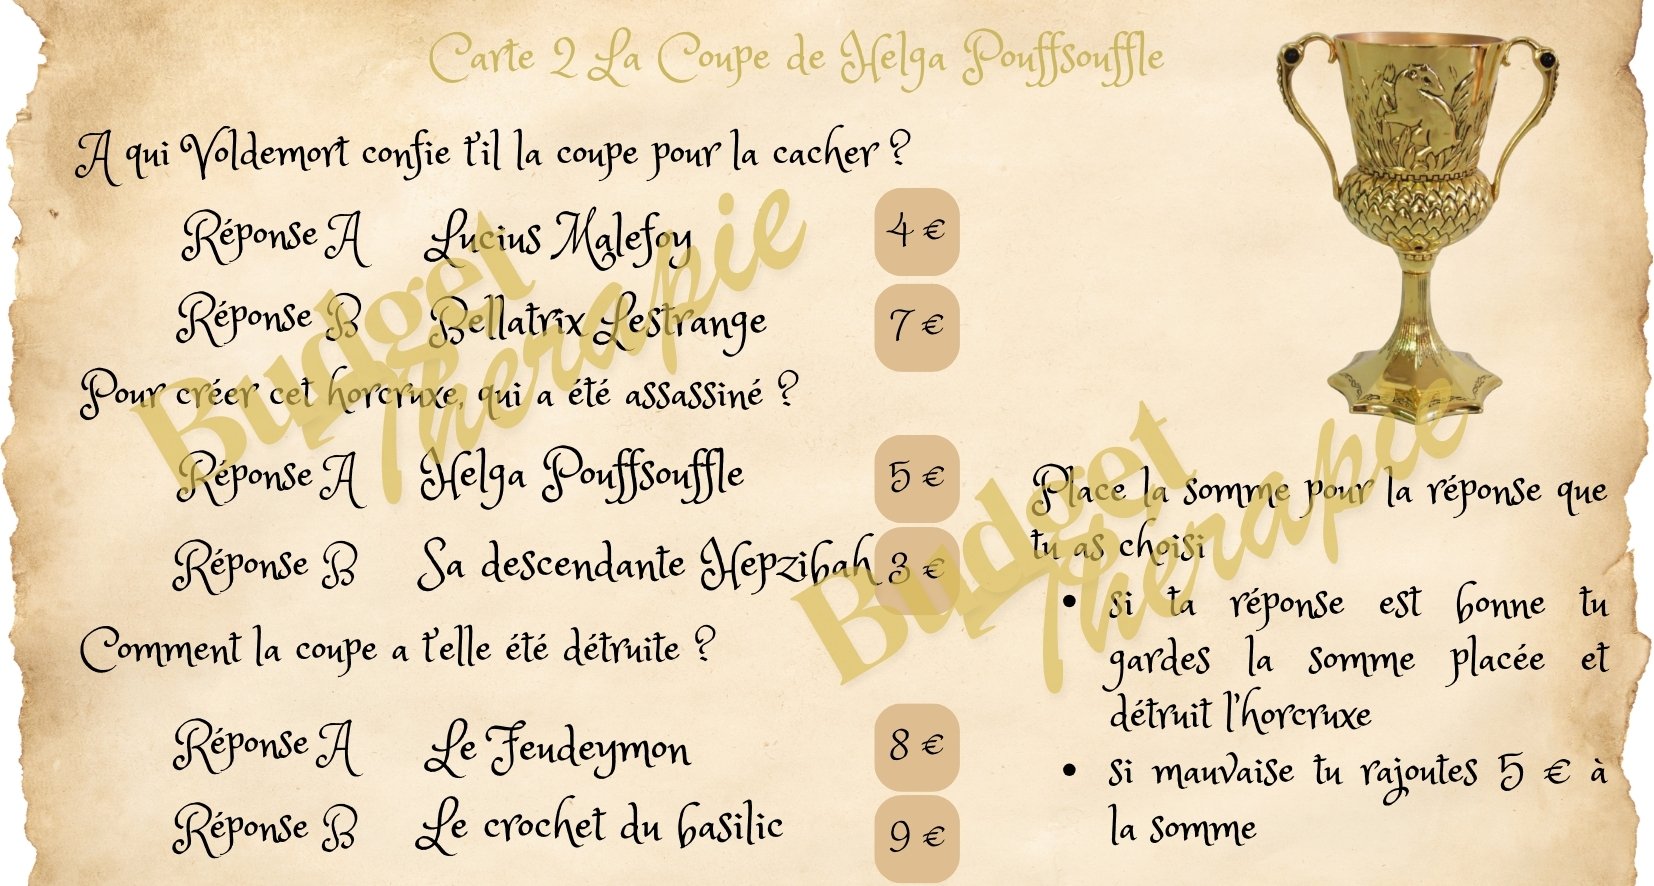 Carte 2 La Coupe de Helga Pouffsouffle
A qui Voldemort confie t'il la coupe pour la cacher ?
Réponse A Lucius Malefoy 4 €
Réponse B Bellatrix Lestrange 7 €
Pour créer cet horcruxe, qui a été assassiné ?
Réponse A Helga Pouffsouffle 5 €
Réponse B Sa descendante Hepzibah 3 €
Comment la coupe a t'elle été détruite ?
Réponse A Le Feudeymon 8 €
Réponse B Le crochet du basilic 9 €
Place la somme pour la réponse que
tu as choisi
• si ta réponse est bonne tu
gardes la somme placée et
détruit l'horcruxe
• si mauvaise tu rajoutes 5 € à
la somme
Budget
thérapie
Budget
thérapie